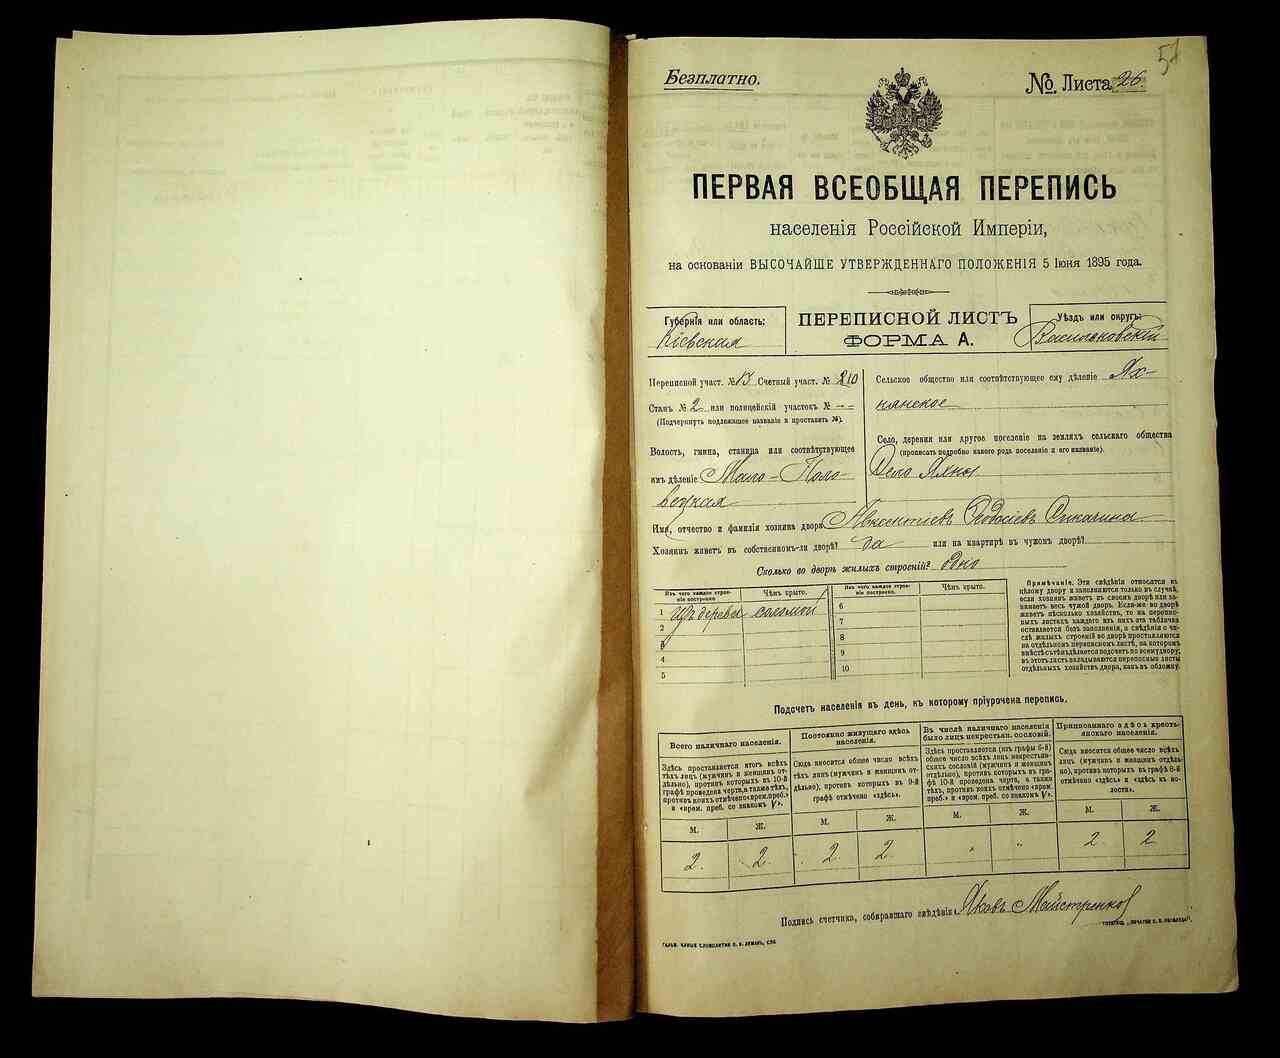 51
Безплатно.
№ Листа 26.
ПЕРВАЯ ВСЕОБЩАЯ ПЕРЕПИСЬ
населенія Россійской Имперіи,
на основаніи ВЫСОЧАЙШЕ УТВЕРЖДЕННАГО ПОЛОЖЕНІЯ 5 Іюня 1895 года.
Губернія или область:
Кіевская
ПЕРЕПИСНОЙ ЛИСТЪ
ФОРМА А.
Уѣздъ или округъ:
Васильковскій
Переписной участ. № Счетный участ. № 210
Станъ № 2 или полицейскій участокъ № – –
(Подчеркнуть подлежащее названіе и проставить №).
Волость, гмина, станица или соотвѣтствующее
имъ дѣленіе Мало-Поло-
вецкая
Сельское общество или соотвѣтствующее ему дѣленіе Ях-
нянское
Село, деревня или другое поселеніе на земляхъ сельскаго общества
(прописать подробно какого рода поселеніе и его названіе).
Село Яхны
Имя, отчество и фамилія хозяина двора Авксентіевъ Ѳеодосіевъ Сикачина
Хозяинъ живетъ въ собственномъ-ли дворѣ? да или на квартирѣ въ чужомъ дворѣ?
Сколько во дворѣ жилыхъ строеній? одно
Изъ чего каждое строе-
ніе построено.
Чѣмъ крыто.
1 Изъ дерева соломой
2
3
4
5
Изъ чего каждое строе-
ніе построено.
Чѣмъ крыто.
6
7
8
9
10
Примѣчаніе. Эти свѣдѣнія относятся къ
цѣлому двору и заполняются только въ случаѣ,
если хозяинъ живетъ въ своемъ дворѣ или за-
нимаетъ весь чужой дворъ. Если-же во дворѣ
живетъ нѣсколько хозяйствъ, то на перепис-
ныхъ листахъ каждаго изъ нихъ эта табличка
оставляется безъ заполненія, а свѣдѣнія о чи-
слѣ жилыхъ строеній во дворѣ проставляются
на отдѣльномъ переписномъ листѣ, на которомъ
вмѣстѣ съ тѣмъ дѣлается подсчетъ по всему двору;
въ этотъ листъ вкладываются переписные листы
отдѣльныхъ хозяйствъ двора, какъ въ обложку.
Подсчетъ населенія въ день, къ которому пріурочена перепись.
Всего наличнаго населенія.
Здѣсь проставляется итогъ всѣхъ
тѣхъ лицъ (мужчинъ и женщинъ от-
дѣльно), противъ которыхъ въ 10-й
графѣ проведена черта, а также тѣхъ,
противъ коихъ отмѣчено «врем. преб.»
и «врем. преб. со знакомъ V».
Постоянно живущаго здѣсь
населенія.
Сюда вносится общее число всѣхъ
тѣхъ лицъ (мужчинъ и женщинъ от-
дѣльно), противъ которыхъ въ 9-й
графѣ отмѣчено «здѣсь».
Въ числѣ наличнаго населенія
было лицъ некрестьян. сословій.
Здѣсь проставляется (изъ графы 6-й)
общее число всѣхъ лицъ некрестьян-
скихъ сословій (мужчинъ и женщинъ
отдѣльно), противъ которыхъ въ гра-
фѣ 10-й проведена черта, а также
тѣхъ, противъ коихъ отмѣчено «врем.
преб.» и «врем. преб. со знакомъ V».
Приписаннаго здѣсь кресть-
янскаго населенія.
Сюда вносится общее число всѣхъ
лицъ (мужчинъ и женщинъ отдѣль-
но), противъ которыхъ въ графѣ 8-й
отмѣчено «здѣсь» и «здѣсь къ во-
лости».
М. Ж. М. Ж. М. Ж. М. Ж.
2. 2. 2. 2. „ „ 2. 2
Подпись счетчика, собиравшаго свѣдѣнія: Яковъ Майстренко
ГАЛЬВ. КЛИШЕ СЛОВОЛИТНИ О. И. ЛЕМАНЪ, СПБ.